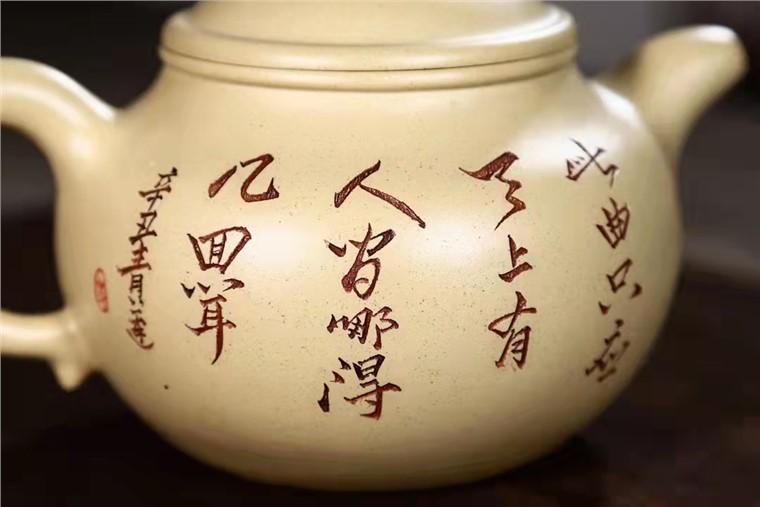 此曲只应
天上有
人间哪得
几回闻
辛丑